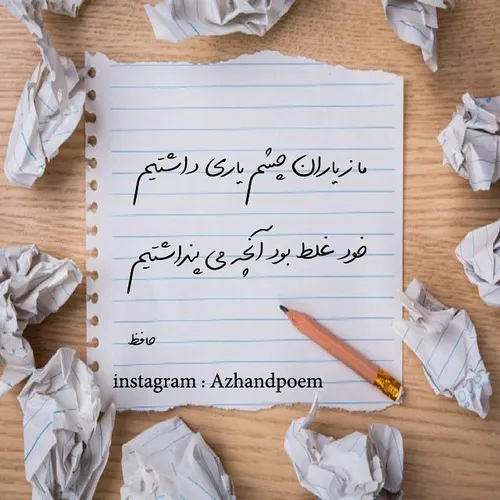 ما ز یاران چشم یاری داشتیم
خود غلط بود آنچه می پنداشتیم
حافظ
instagram : Azhandpoem